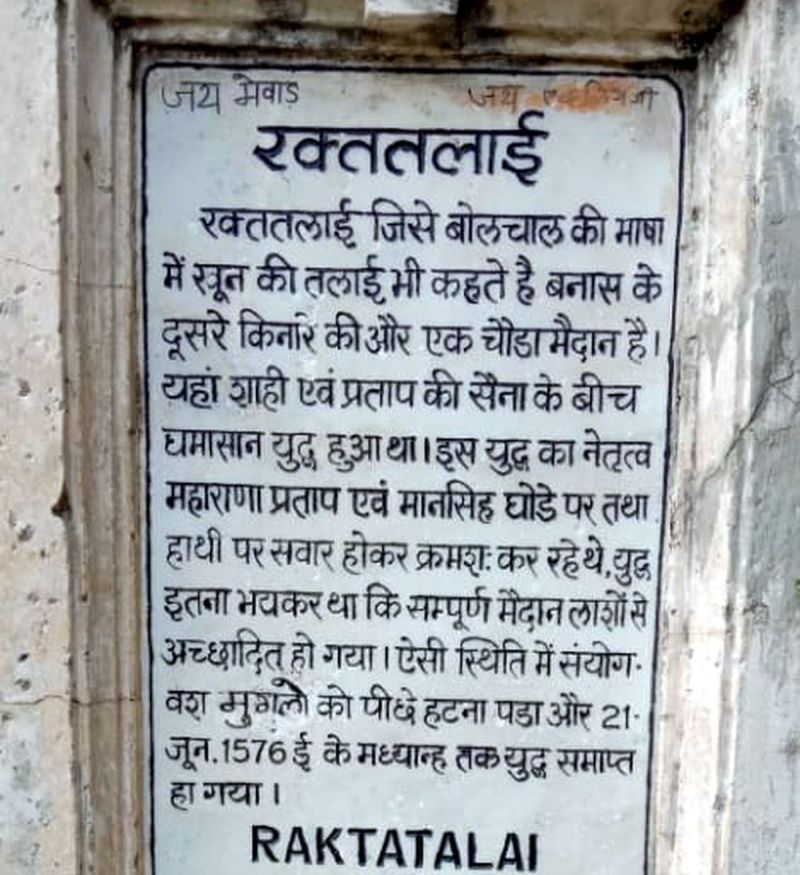 जय मेवाड
जय
रक्ततलाई
रक्ततलाई जिसे बोलचाल की भाषा
में खून की तलाई भी कहते है बनास के
दूसरे किनारे की और एक चौडा मैदान है।
यहां शाही एवं प्रताप की सैना के बीच
घमासान युद्ध हुआ था। इस युद्ध का नेतृत्व
महाराणा प्रताप एवं मानसिह घोडे पर तथा
हाथी पर सवार होकर क्रमश: कर रहे थे, युद्ध
इतना भयकर था कि सम्पूर्ण मैदान लाशों से
अच्छादित हो गया। ऐसी स्थिति में संयोग-
वश मुगलो को पीछे हटना पडा और 21-
जून.1576 ई के मध्यान्ह तक युद्ध समाप्त
हा गया।
RAKTATALAI